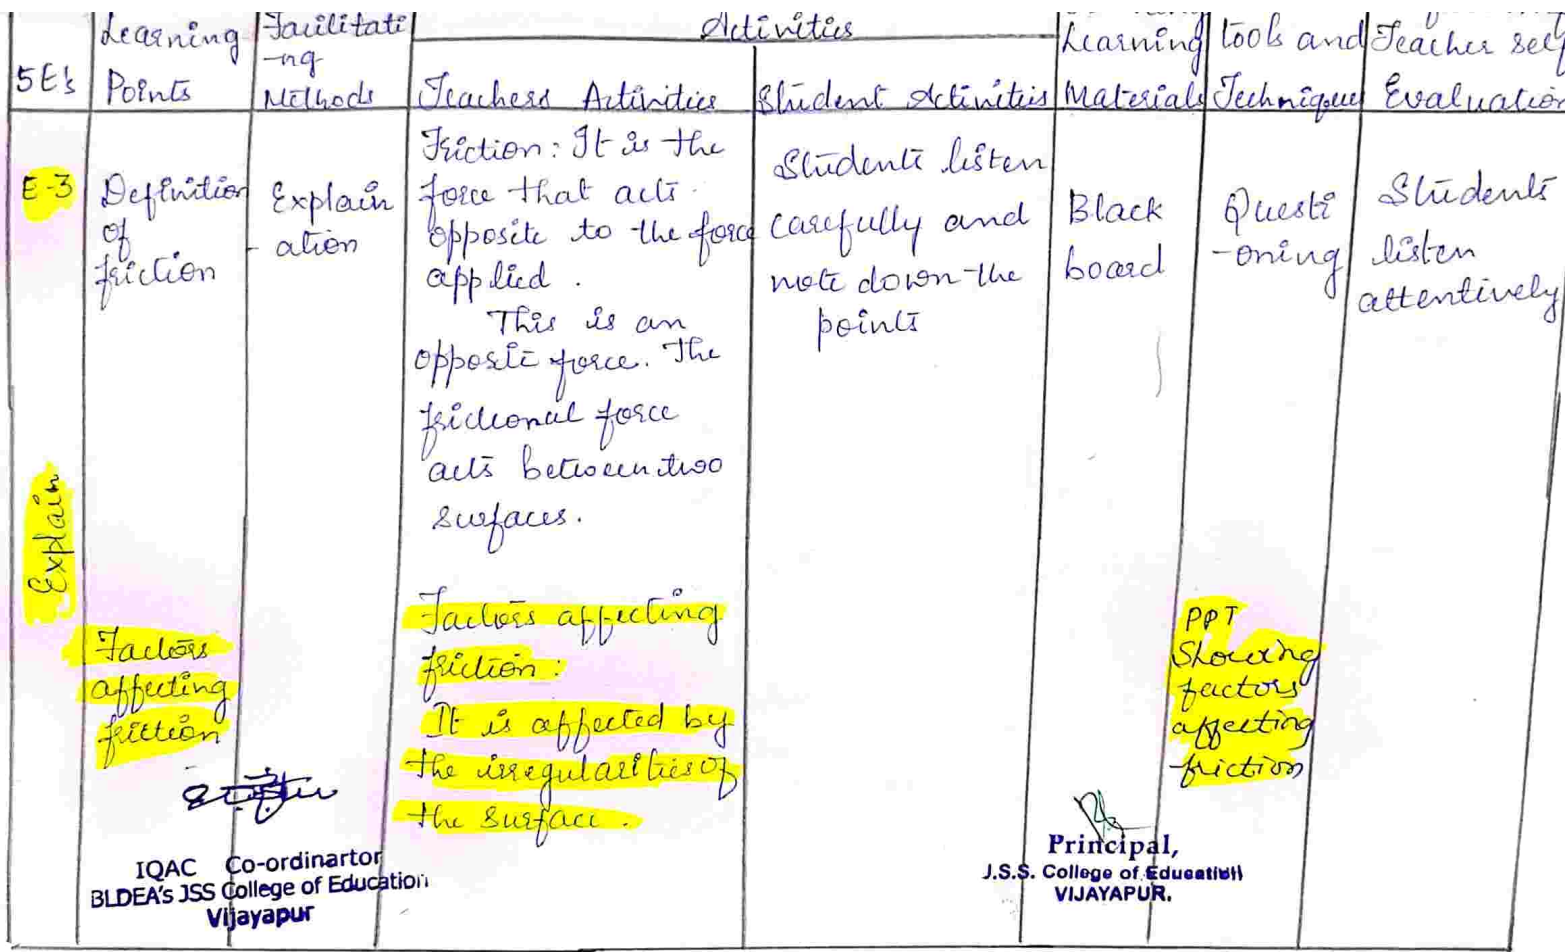 Learning
Points
Facilitati
-ng
Methods
Activities
5E's
Teachers Activities
Student Activities
Learning
Materials
tools and
Techniques
Teacher self
Evaluation
E-3
Explain
Definition
of
friction
Explain
- ation
Friction: It is the
force that acts
opposite to the force
applied.
This is an
opposite force. The
frictional force
acts between two
surfaces.
Students listen
carefully and
note down the
points
Black
board
Questi
-oning
Students
listen
attentively
Factors
affecting
friction
Factors affecting
friction:
It is affected by
the irregularities of
the surface.
PPT
Showing
factors
affecting
friction
IQAC Co-ordinartor
BLDEA's JSS College of Education
Vijayapur
Principal,
J.S.S. College of Education
VIJAYAPUR.